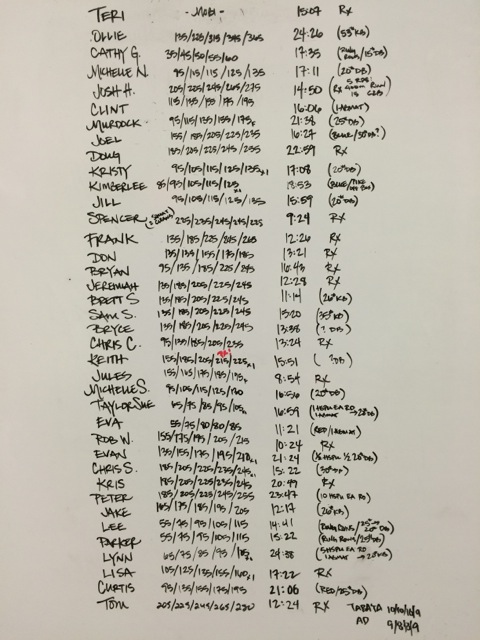 TERI - MOBI - 15:07 RX
OLLIE 135/225/315/345/365 24:26 (53#KB)
CATHY G. 35/45/50/55/60 17:35 (RING ROWS/15#DB)
MICHELLE N. 95/115/115/125/135 17:11 (20#DB)
JOSH H. 205/225/245/265/275 14:50 (RX 5 RDS RUN
CLINT 115/135/155/175/195 16:06
MURDOCK 95/115/135/155/175F 21:38 (25#DB)
JOEL 155/185/205/225/235 16:27 (BLUE/50#DB?)
DOUG 185/205/225/245/255 22:59 RX
KRISTY 95/105/115/125/135x1 17:08 (20#DB)
KIMBERLEE 85/95/105/115/125x1 (BLUE/
JILL 95/105/115/125/135 15:59 (20#DB)
SPENCER 225/235/245/245/225 9:24 RX
FRANK 135/185/225/245/260 12:26 RX
DON 135/135/155/175/185 13:21 RX
BRYAN 95/135/185/225/245 16:43 RX
JEREMIAH 135/185/205/225/245 12:28 RX
BRETT S 135/185/205/225/245 11:14 (26#KB)
SAM S. 135/185/205/225/245 15:20 (35#KB)
BRYCE 135/185/205/225/245 13:38 (? DB)
CHRIS C. 95/135/185/205/235 13:24 RX
KEITH 155/185/205/215/225x1 15:51 ( ?DB)
JULES 155/165/175/185/195F 8:54 RX
MICHELLE S. 95/105/115/125/130 16:56 (20#DB)
TAYLOR SUE 65/75/85/95/105 16:59 (1 HSPU EA RD,
EVA 55/75/80/80/85 11:21 (RED/
ROB W. 155/175/195/205/215 10:24 RX
EVAN 135/155/175/195/210x1 21:24 (½ HSPU ½ 25#DB)
CHRIS S. 185/205/225/235/245x1 15:22 (30#DB)
KRIS 185/205/225/235/245 20:49 RX
PETER 185/205/225/245/255 23:47 (10 HSPU EA RD)
JAKE 165/175/185/195/205 12:17 (26#KB)
LEE 55/75/95/105/115 14:41 (RING ROWS/25# → 20#DB)
PARKER 55/75/95/105/115 15:22 (RING ROWS/25#DB)
LYNN 65/75/85/95/115 24:38 (5 HSPU EA RD
LISA 105/125/135/155/160x1 17:22 RX
CURTIS 95/135/155/175/195 21:06 (RED/25#DB)
TOM 205/225/245/265/270 12:24 RX TABATA 10/10/10/9
AD 9/8/8/9